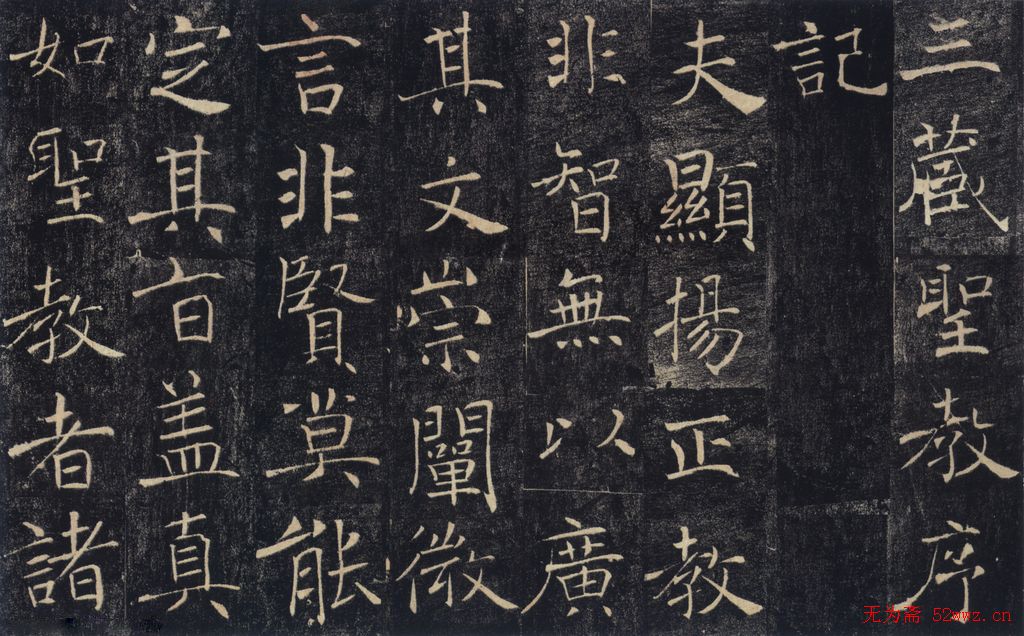 三藏聖教序
記
夫顯揚正教
非智無以廣
其文崇闡微
言非賢莫能
定其旨盖真
如聖教者諸
无为斋 52wwz.cn